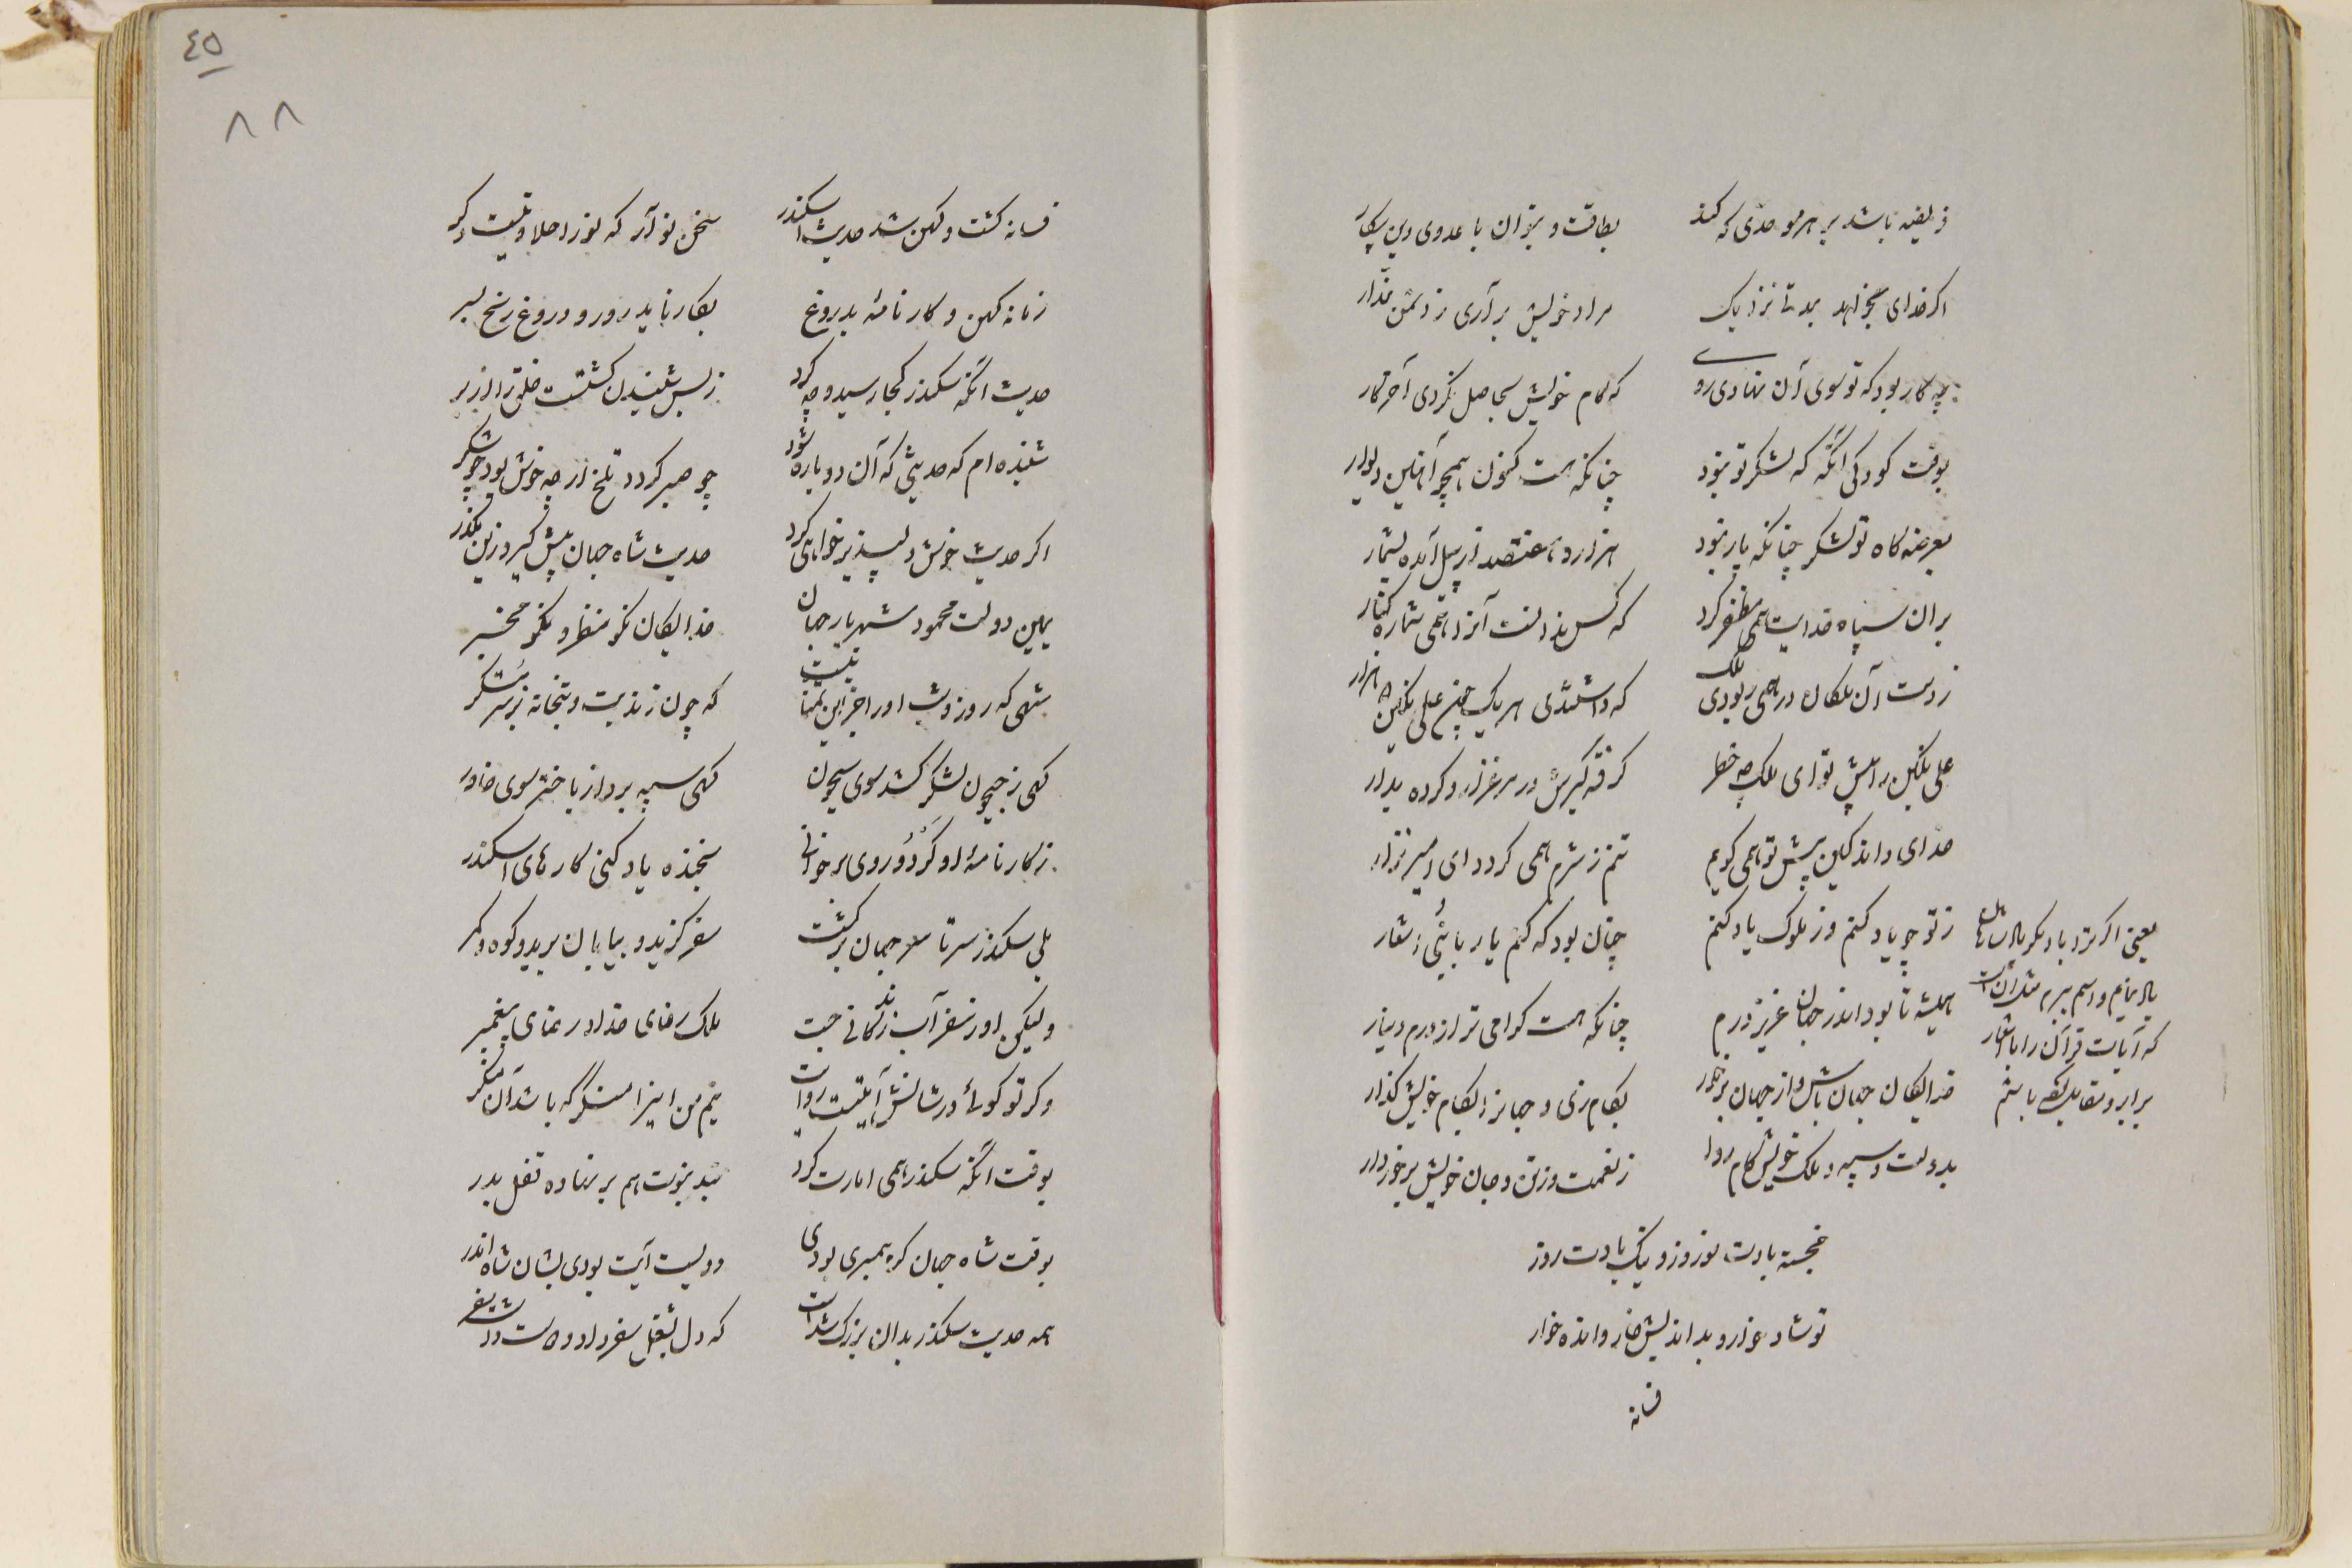 فریضه باشد بر هر موحدی که کند بطاقت و بتوان با عدوی دین پیکار
اگر خدای بخواهد بمدتا نزدیک مراد خویش برآری ز دشمن غدار
چه کار بود که تو سوی آن نهادی روی که کام خویش بحاصل نکردی آخر کار
بوقت کودکی آنگه که لشکر تو نبود چنانکه هست کنون همچو آهنین دیوار
بعرضه گاه تو لشکر چنانکه پار نبود هزار و هفتصد از پیل آمده بشمار
بران سپاه خدایت همی مظفر کرد که کس ندانست آنرا همی شماره کنار
ز دست آن ملکان درهمی ربودی ملک که داشتندی هر یک چن علی تکین هزار
علی تکین را پیش تو ای ملک چه خطر گرفته گیرش در مرغزار و کرده بدار
خدای داند کاین پیش تو همی گویم تنم ز شرم همی گردد ای امیر نزار
ز تو چو یاد کنم وز ملوک یاد کنم چنان بود که کنم یاد با نُبی اشعار
همیشه تا بود اندر جهان عزیز درم چنانکه هست گرامی تر از درم دینار
خدایگان جهان باش و از جهان برخور بکام زی و جهانرا بکام خویش گذار
بدولت و سپه و ملک خویش کام روا ز نعمت و ز تن و جان خویش برخوردار
خجسته بادت نوروز و نیک بادت روز
تو شاد خوار و بداندیش خار و انده خوار
فسانه
که آیات قرآن را با اشعار
برابر و مقابل باشم
٤٥
٨٨
فسانه گشت و کهن شد حدیث اسکندر سخن نو آر که نو را حلاوتیست دگر
فسانه کهن و کارنامهٔ بدروغ بکار ناید رو در دروغ رنج مبر
حدیث آنکه سکندر کجا رسید و چه کرد ز بس شنیدن گشتست خلق را از بر
شنیده ام که حدیثی که آن دوباره شود چو صبر گردد تلخ ار چه خوش بود چو شکر
اگر حدیث خوش و دلپذیر خواهی کرد حدیث شاه جهان پیش گیر و زین مگذر
یمین دولت محمود شهریار جهان خدایگان نکو منظر و نکو مخبر
شهی که روز و شب او را جز این تمنا نیست که چون زند بت و بتخانه بر سر بتگر
گهی ز جیحون لشکر کشد سوی سیحون گهی سپه برد از باختر سوی خاور
ز کارنامهٔ او گر دو روی بر خوانی بخنده یاد کنی کارهای اسکندر
بلی سکندر سرتاسر جهان بر گشت سفر گزید و بیابان برید و کوه و کمر
ولیکن او ز سفر آب زندگانی جست ملک رضای خدا و رضای پیغمبر
و گر تو گوئی در شانش آیتست رواست نیم من این را منکر که باشد آن منکر
بوقت آنکه سکندر همی امارت کرد نبد نبوت هم بر نهاده قفل بدر
بوقت شاه جهان گر پیمبری بودی دویست آیت بودی بشان شاه اندر
همه حدیث سکندر بدان بزرگ شدست که دل بشغل سفر داد و دست